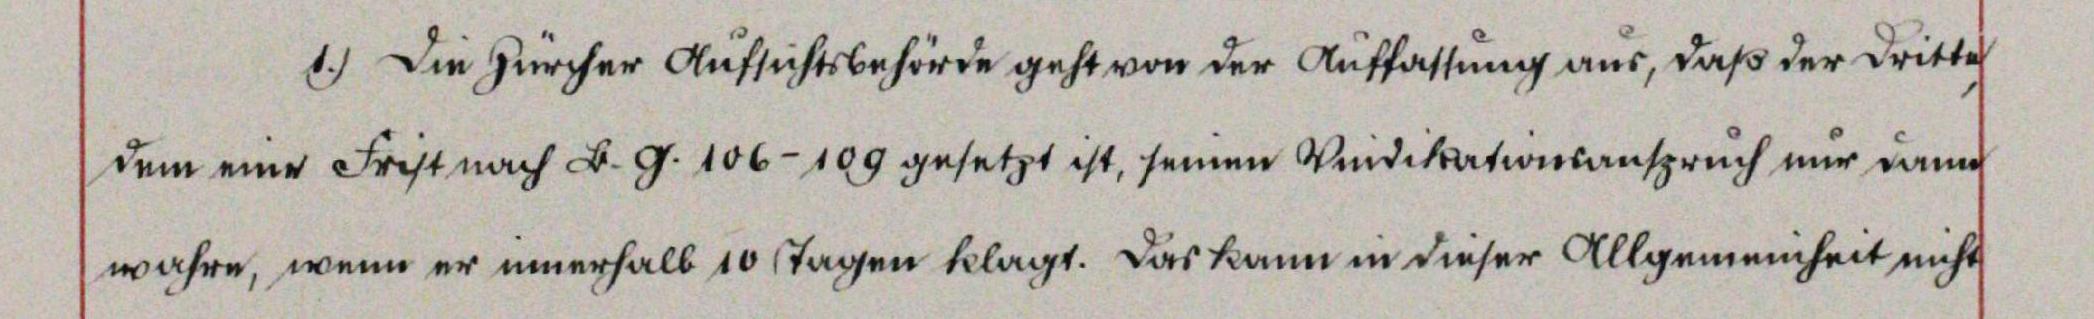 1.) Die Zürcher Aufsichtsbehörde geht von der Auffassung aus, daß der Dritte,
dem eine Frist nach B. G. 106-109 gesetzt ist, seinen Vindikationsanspruch nur dann
wahre, wenn er innerhalb 10 Tagen klagt. Das kann in dieser Allgemeinheit nicht